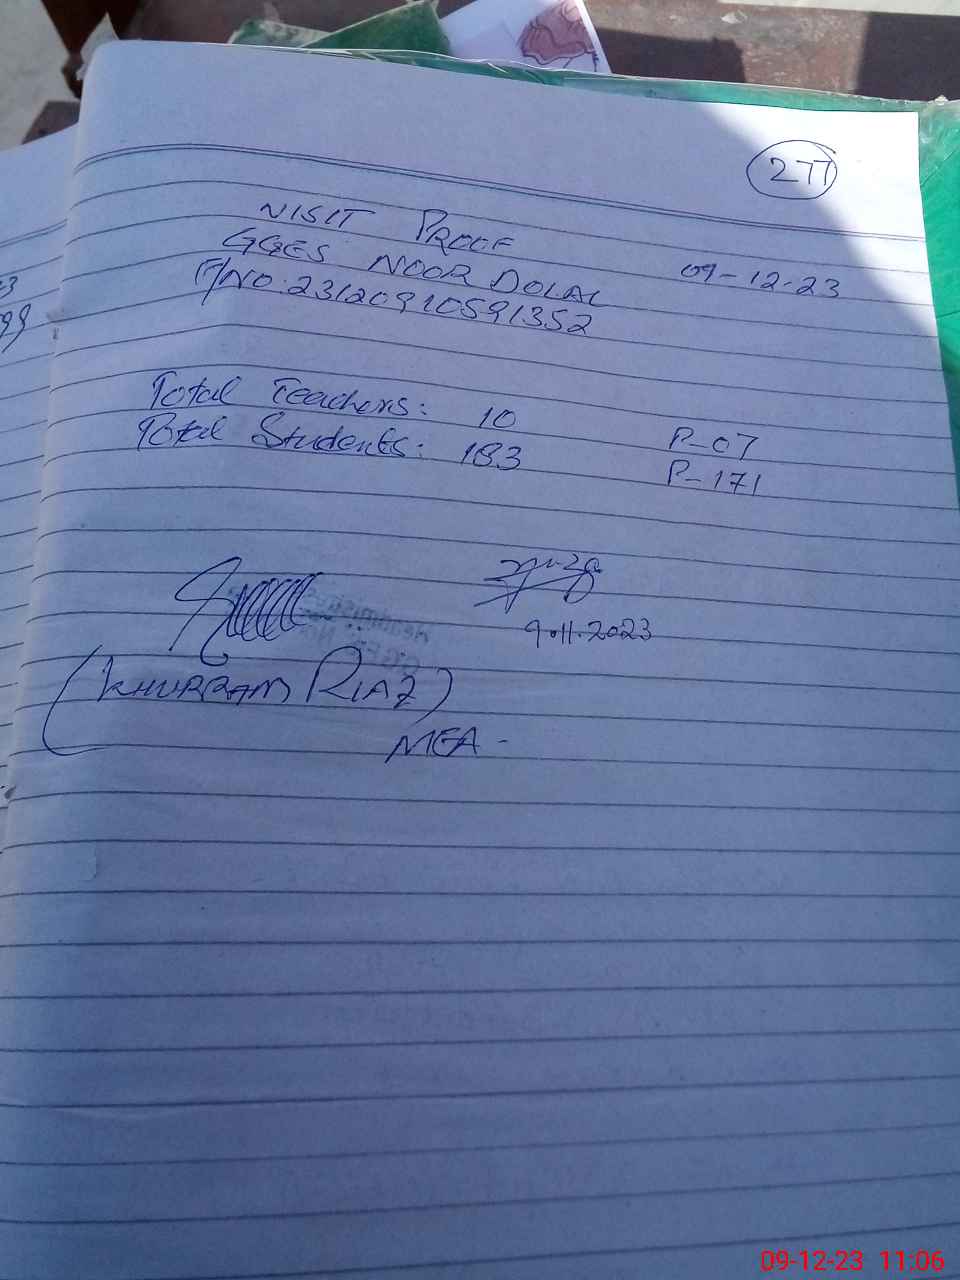 277
VISIT PROOF
GGES NOOR DOLAL 09-12-23
F/NO: 23120910591352
Total Teachers: 10 P-07
Total Students: 183 P-171
9.11.2023
(KHURRAM RIAZ)
MEA-
09-12-23 11:06